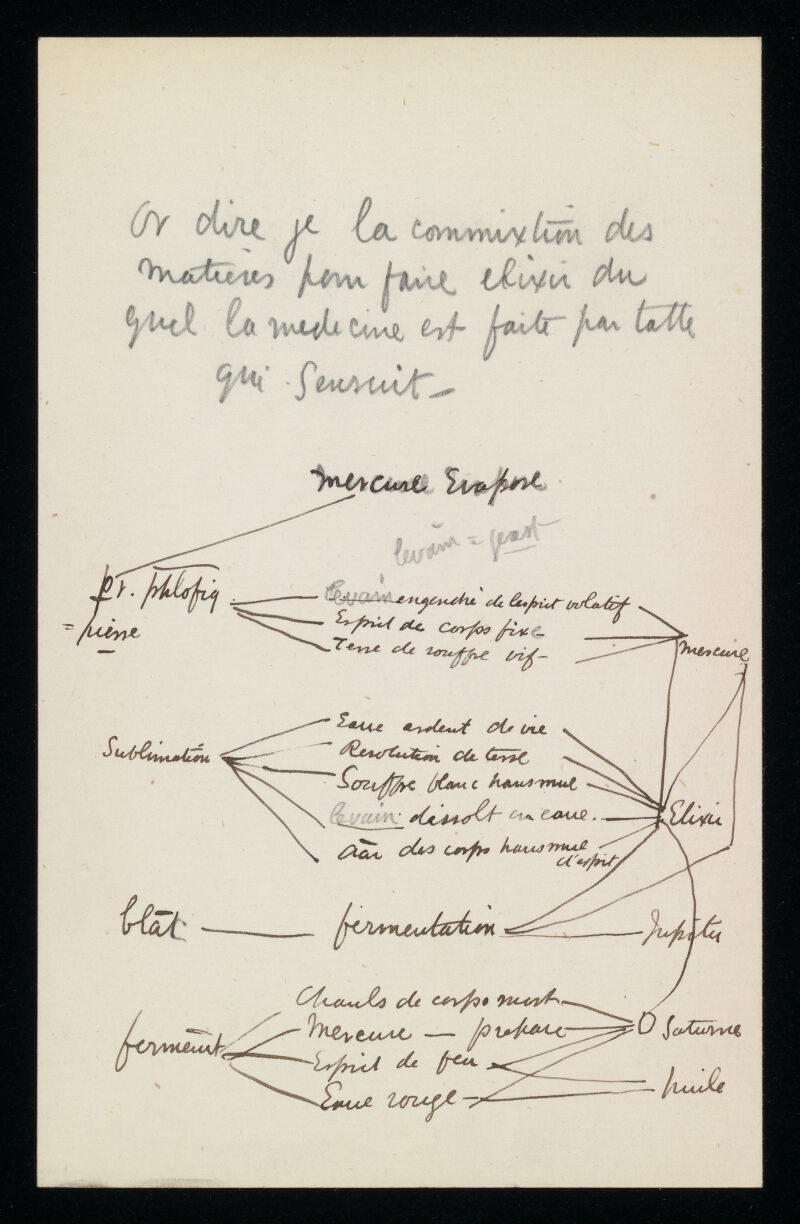 Or dire je la commixtiōn des
matieres pour faire elixir du
quel la medecine est faite par tatte
qui Sensuit —
mercure Evapore
levain = yeast
pr. phlosiq
= pierre
levain engendré de lespiet volatif
Esprit de corps fixe
Terre de souffre vif
mercure
Sublimatiōn
Eaue ardent de vie
Resolution de terre
Souffre blanc hausmue
levain dissolt en eaue.
des corps hausmue
d'esprit
Elixir
blāt — fermentatiōn — Jupiter
fermēnt
Chauls de corps mort
Mercure — prepare
Esprit de feu
Eaue rouge
Saturne
huile